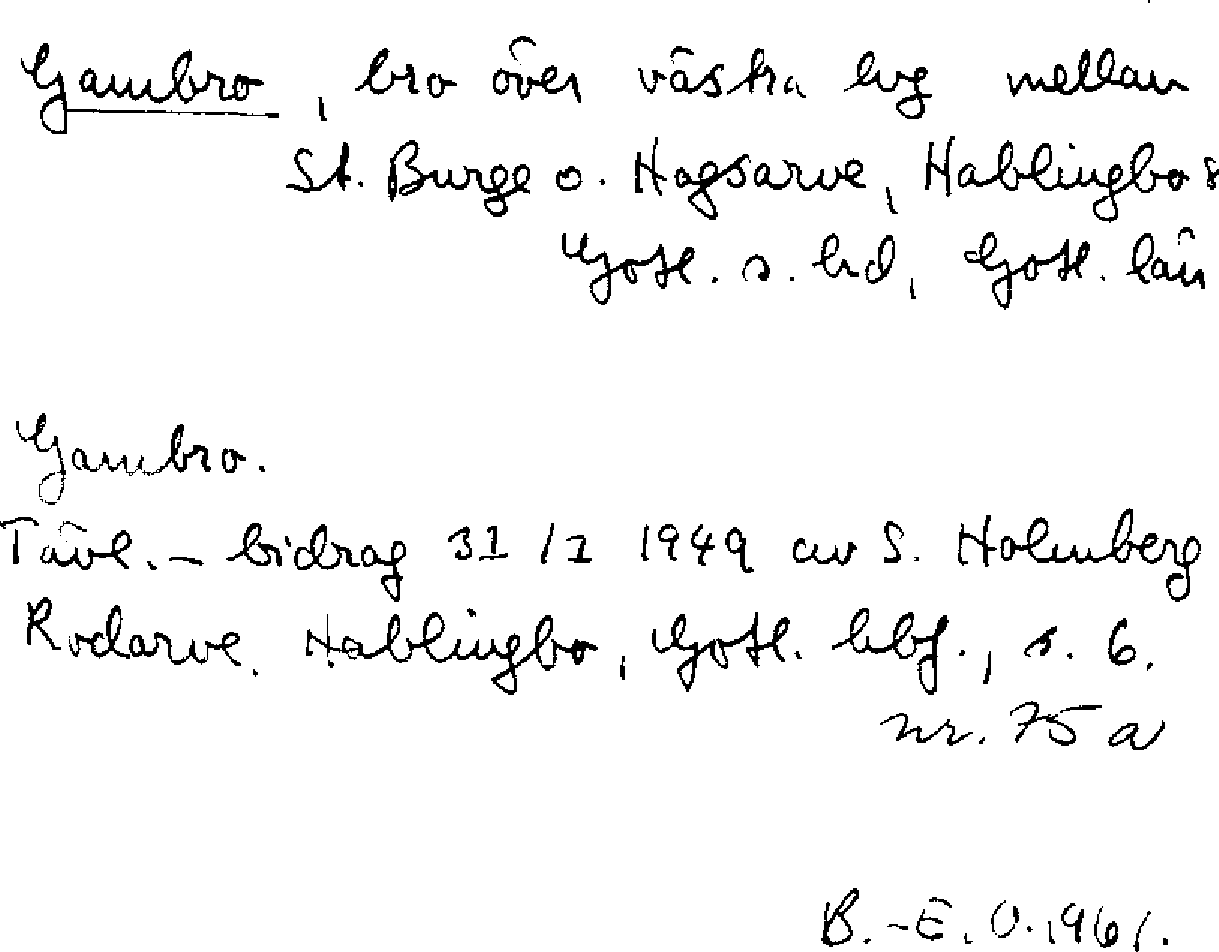 Gambro, bro över västra lvg mellan
St. Burge o. Hagsarve, Hablingbo s
Gotl. s. hd, Gotl. län
Gambro.
Tävl.-bidrag 31/1 1949 av S. Holmberg
Rodarve. Hablingbo, Gotl. hbf., s. 6.
nr. 75 a
B.-E. O. 1961.